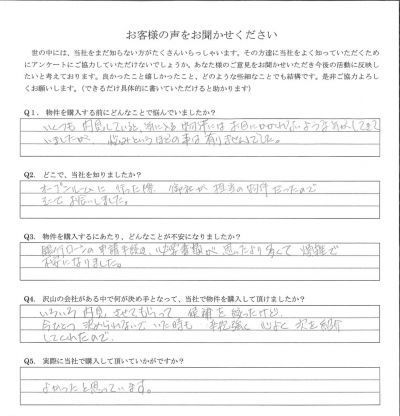 お客様の声をお聞かせください
世の中には、当社をまだ知らない方がたくさんいらっしゃいます。その方達に当社をよく知っていただくため
にアンケートにご協力していただけないでしょうか。あなた様のご意見をお聞かせいただき今後の活動に反映し
たいと考えております。良かったこと嬉しかったこと、どのような些細なことでも結構です。是非ご協力よろし
くお願いします。(できるだけ具体的に書いていただけると助かります)
Q1. 物件を購入する前にどんなことで悩んでいましたか?
いくつも内見していると、気に入る物件にはお目にかかれないような気がしてきて
いましたが、悩みというほどの事は有りませんでした。
Q2. どこで、当社を知りましたか?
オープンルームに伺った際、御社が担当の物件だったので
そこでお会いしました。
Q3. 物件を購入するにあたり、どんなことが不安になりましたか?
銀行ローンの申請手続き、必要書類が思ったより多くて煩雑で
不安になりました。
Q4. 沢山の会社がある中で何が決め手となって、当社で物件を購入して頂けましたか?
いろいろ内見させてもらって、候補を絞ったけど、
今ひとつ決められないでいた時も、手際強く心よく次を紹介
してくれたので。
Q5. 実際に当社で購入して頂いていかがですか?
よかったと思っています。